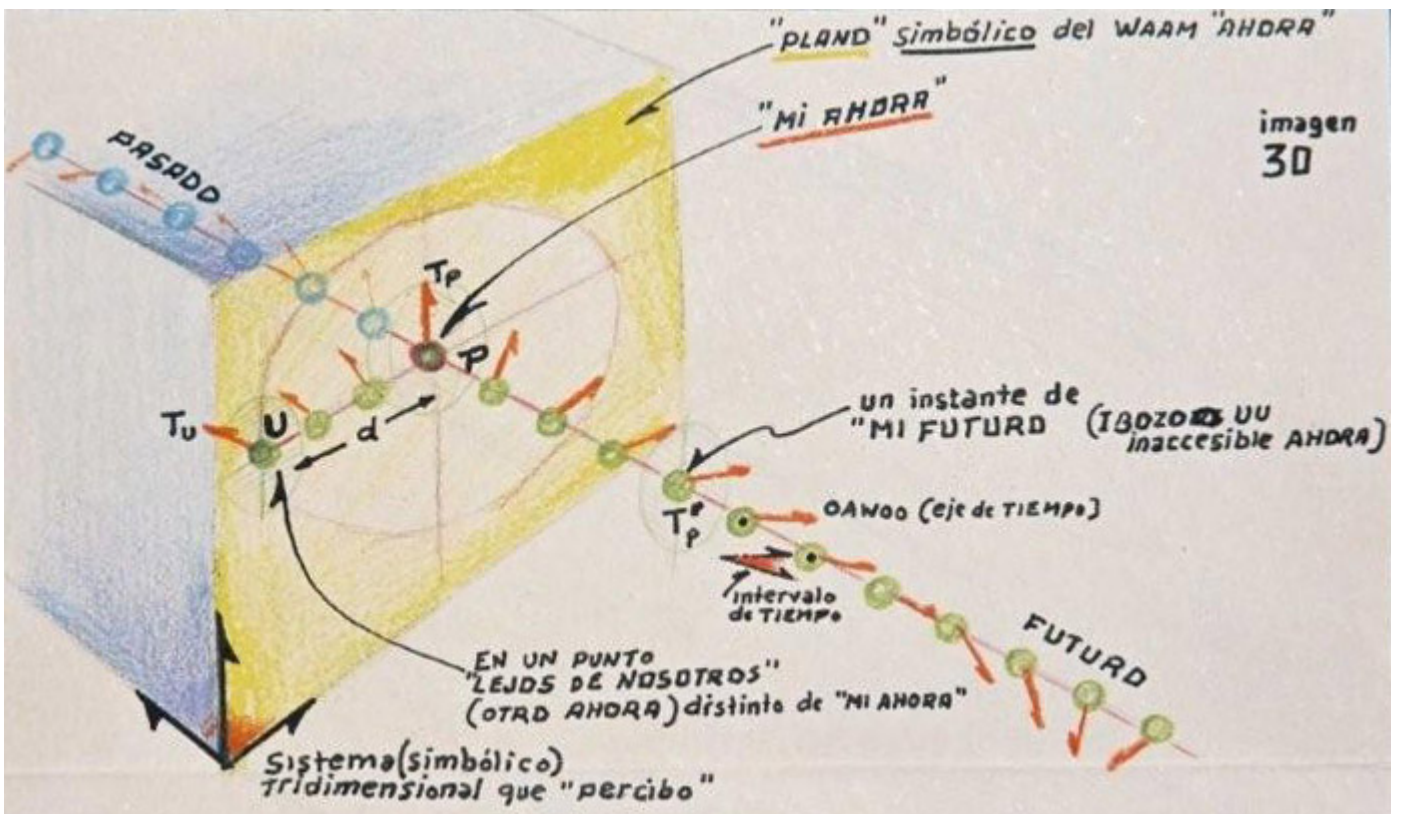 "PLANO" simbólico del WAAM "AHORA"
"Mi AHORA"
imagen
30
PASADO
Tp
P
Tu
U
d
un instante de
"MI FUTURO (IBOZOO UU
inaccesible AHORA)
T'p
OAWOO (eje de TIEMPO)
intervalo
de TIEMPO
FUTURO
EN UN PUNTO
"LEJOS DE NOSOTROS"
(OTRO AHORA) distinto de "MI AHORA"
Sistema (simbólico)
Tridimensional que "percibo"